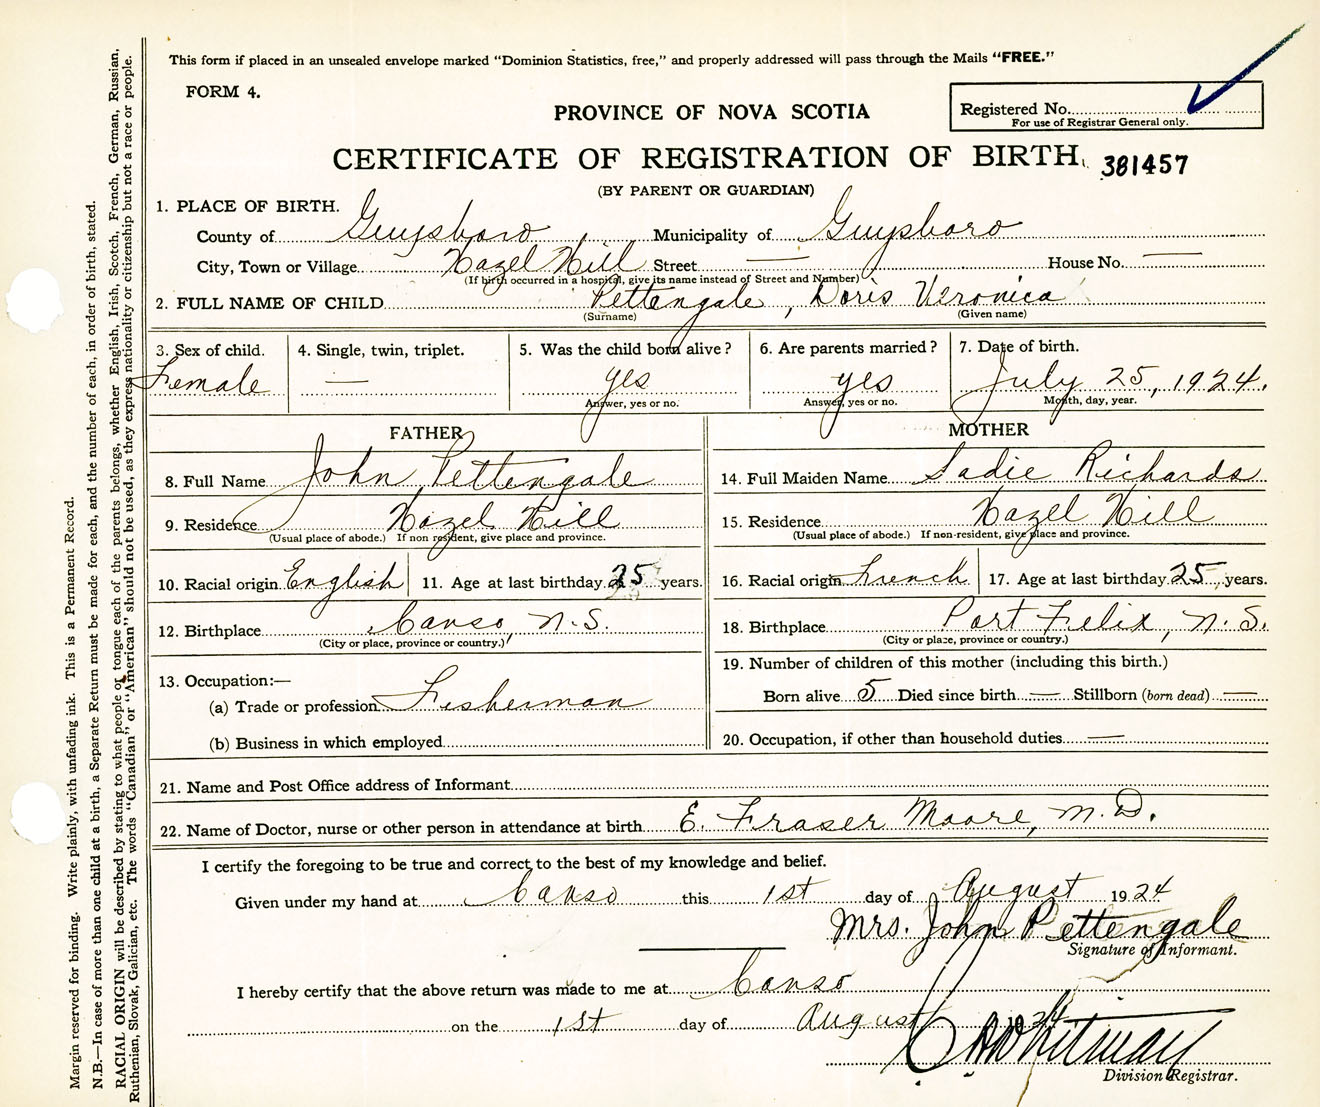 This form if placed in an unsealed envelope marked "Dominion Statistics, free," and properly addressed will pass through the Mails "FREE."
FORM 4.
PROVINCE OF NOVA SCOTIA
Registered No.
For use of Registrar General only.
CERTIFICATE OF REGISTRATION OF BIRTH. 381457
(BY PARENT OR GUARDIAN)
1. PLACE OF BIRTH.
County of Guysboro Municipality of Guysboro
City, Town or Village Hazel Hill Street — House No. —
(If birth occurred in a hospital, give its name instead of Street and Number)
2. FULL NAME OF CHILD Pettengale, Doris Veronica
(Surname) (Given name)
3. Sex of child. 4. Single, twin, triplet. 5. Was the child born alive? 6. Are parents married? 7. Date of birth.
Female — yes yes July 25, 1924.
Answer, yes or no. Answer, yes or no. Month, day, year.
FATHER
8. Full Name John Pettengale
9. Residence Hazel Hill
(Usual place of abode.) If non resident, give place and province.
10. Racial origin English 11. Age at last birthday 25 years.
12. Birthplace Canso, N.S.
(City or place, province or country.)
13. Occupation:—
(a) Trade or profession Fisherman
(b) Business in which employed
MOTHER
14. Full Maiden Name Sadie Richards
15. Residence Hazel Hill
(Usual place of abode.) If non-resident, give place and province.
16. Racial origin French 17. Age at last birthday 25 years.
18. Birthplace Port Felix, N.S.
(City or place, province or country.)
19. Number of children of this mother (including this birth.)
Born alive 5 Died since birth — Stillborn (born dead) —
20. Occupation, if other than household duties —
21. Name and Post Office address of Informant
22. Name of Doctor, nurse or other person in attendance at birth E. Fraser Moore, M.D.
I certify the foregoing to be true and correct to the best of my knowledge and belief.
Given under my hand at Canso this 1st day of August 1924
Mrs. John Pettengale
Signature of Informant.
I hereby certify that the above return was made to me at Canso
on the 1st day of August 1924
Whitman
Division Registrar.
Margin reserved for binding. Write plainly, with unfading ink. This is a Permanent Record.
N.B.—In case of more than one child at a birth, a Separate Return must be made for each, and the number of each, in order of birth, stated.
RACIAL ORIGIN will be described by stating to what people or tongue each of the parents belongs, whether English, Irish, Scotch, French, German, Russian,
Ruthenian, Slovak, Galician, etc. The words "Canadian" or "American" should not be used, as they express nationality or citizenship but not a race or people.